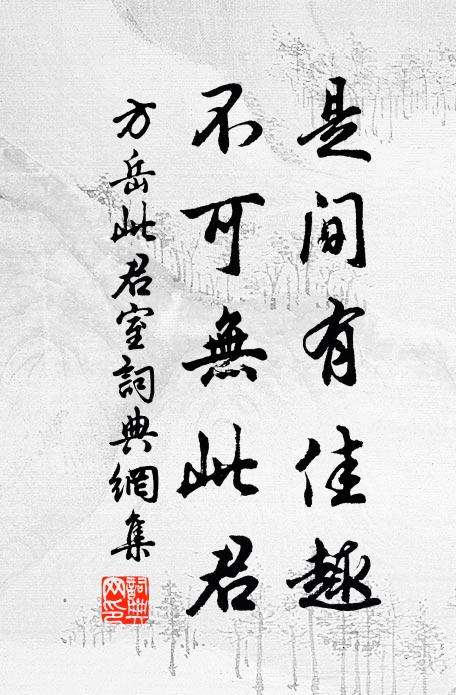 是間有佳趣
不可無此君
方岳此君室詞典網集
詞典